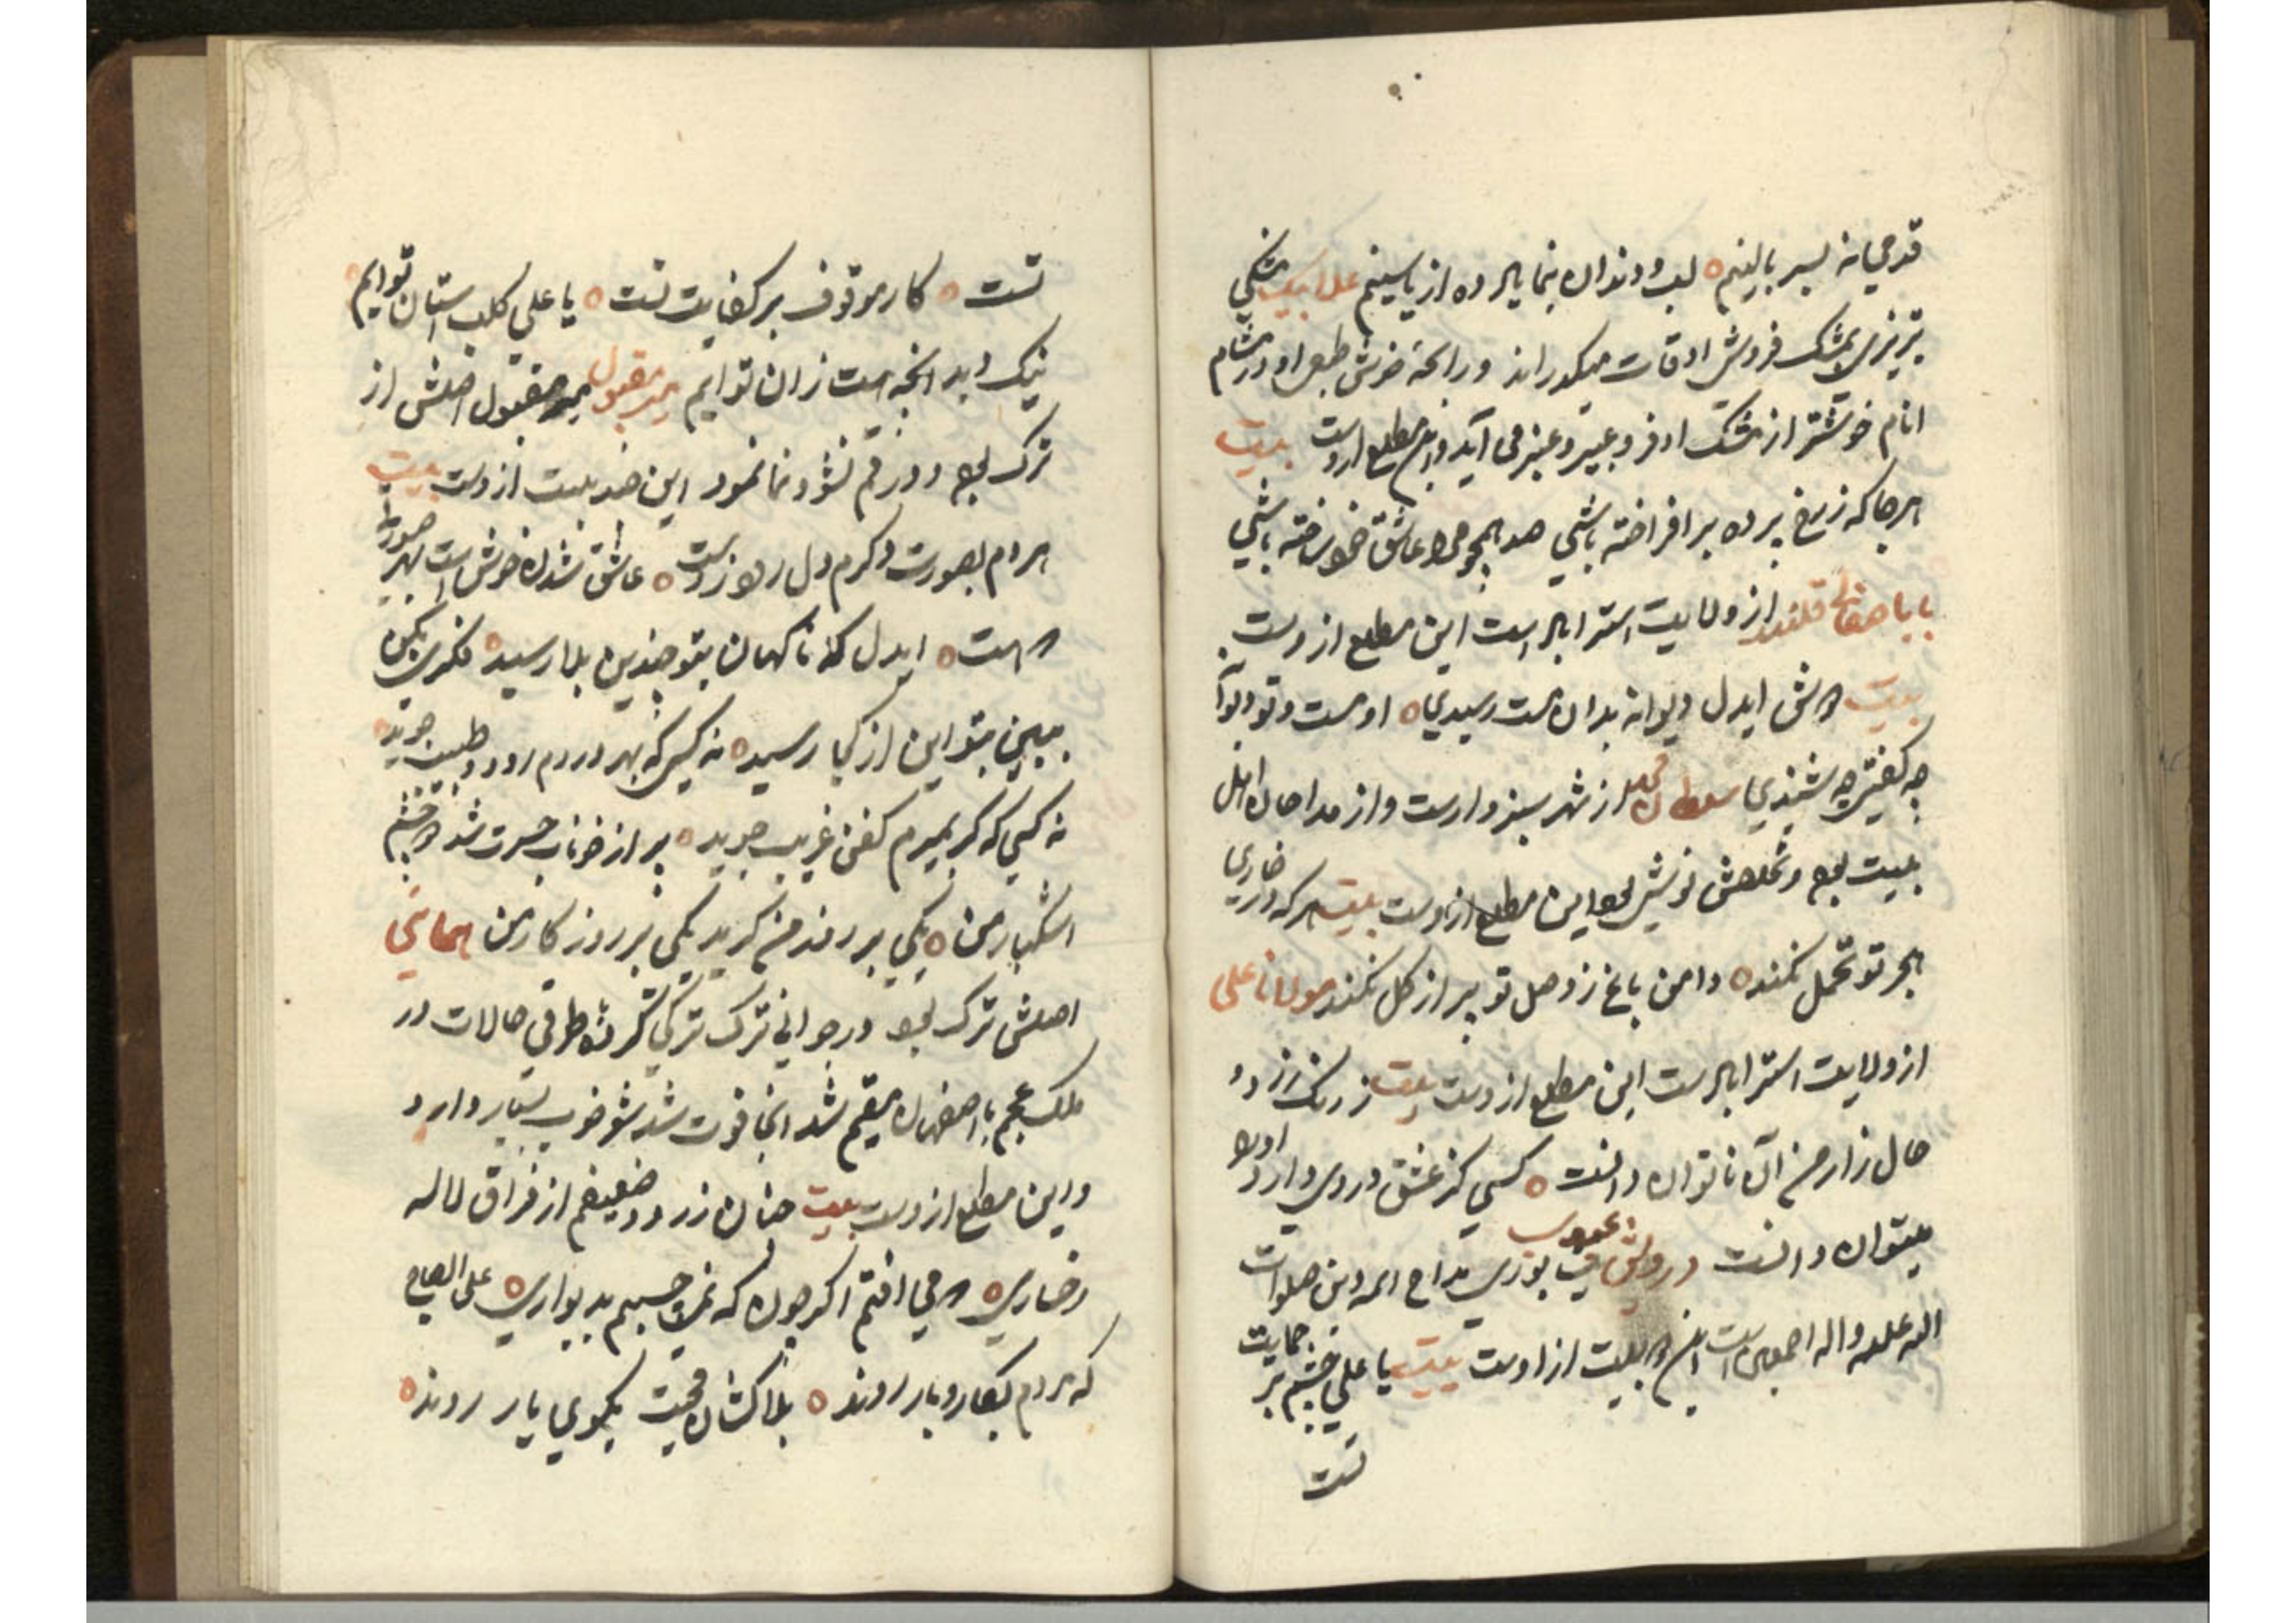 قدمی نه بسر بالینم ه لب و دندان بنما یاره از یاسینم علا بیک مشکی
تبریزی بمشک فروشی اوقات میگذراند و رایحهٔ خوش طبع او در مشام
انام خوشتر از مشک اذفر و عبیر و عنبر می آید و این مطلع ازوست بیت
هرجا که ز رخ پرده بر افراخته باشی صد همچو مرا عاشق خود ساخته باشی
بابا صفائی قلندر از ولایت استراباد است این مطلع ازوست
بیت دوش ایدل دیوانه بدان مست رسیدی ه او مست و تو دیوانه
چه گفتی چه شنیدی سلطان محمد از شهر سبزوار است و از مداحان اهل
بیت بود و تخلصش این مطلع ازوست بیت هرکه در خاری
هجر تو تحمل نکند ه دامن باغ ز وصل تو پر از گل نکند مولانا علی
از ولایت استراباد است این مطلع ازوست بیت ز رنگ زرد
حال زار من آن ناتوان دانست ه کسی کز عشق دردی دارد او را
میتوان دانست درویش مداح ائمه دین صلوات
الله علیه و اله اجمعین است این دو بیت از اوست بیت یا علی چشم بر حمایت
تست
تست ه کار موقوف بر کفایت تست ه یا علی کلب استان توایم ه
نیک و بد انچه هست زان توایم میر مقبول میر مقبول اصلش از
ترک بود و در قم نشو و نما نمود این چند بیت ازوست بیت
هر دم بصورت دگرم دل ربودنست ه عاشق شدن خوش است بهر صورت
که هست ه ایدل که ناگهان بتو چندین بلا رسید ه فکری بکن
ببین بتو این از کجا رسید ه نه کسی که بهر دردم رود و طبیب جوید ه
نه کسی که گر بمیرم کفن غریب جوید ه پر از خوناب حسرت شد دو چشم
اشکبار من ه یکی بر روز من گرید یکی بر روزگار من همائی
اصلش ترک بود در جوانی ترک ترکی حالات در
ملک عجم باصفهان مقیم شد انجا فوت شد شعر خوب بسیار دارد
و این مطلع ازوست بیت چنان زرد و ضعیفم از فراق لاله
رخساری ه که می افتم اگر چون که نمی چسپم بدیواری ه علی الصباح
که مردم بکار و بار روند ه بلاکشان محبت بکوی یار روند ه